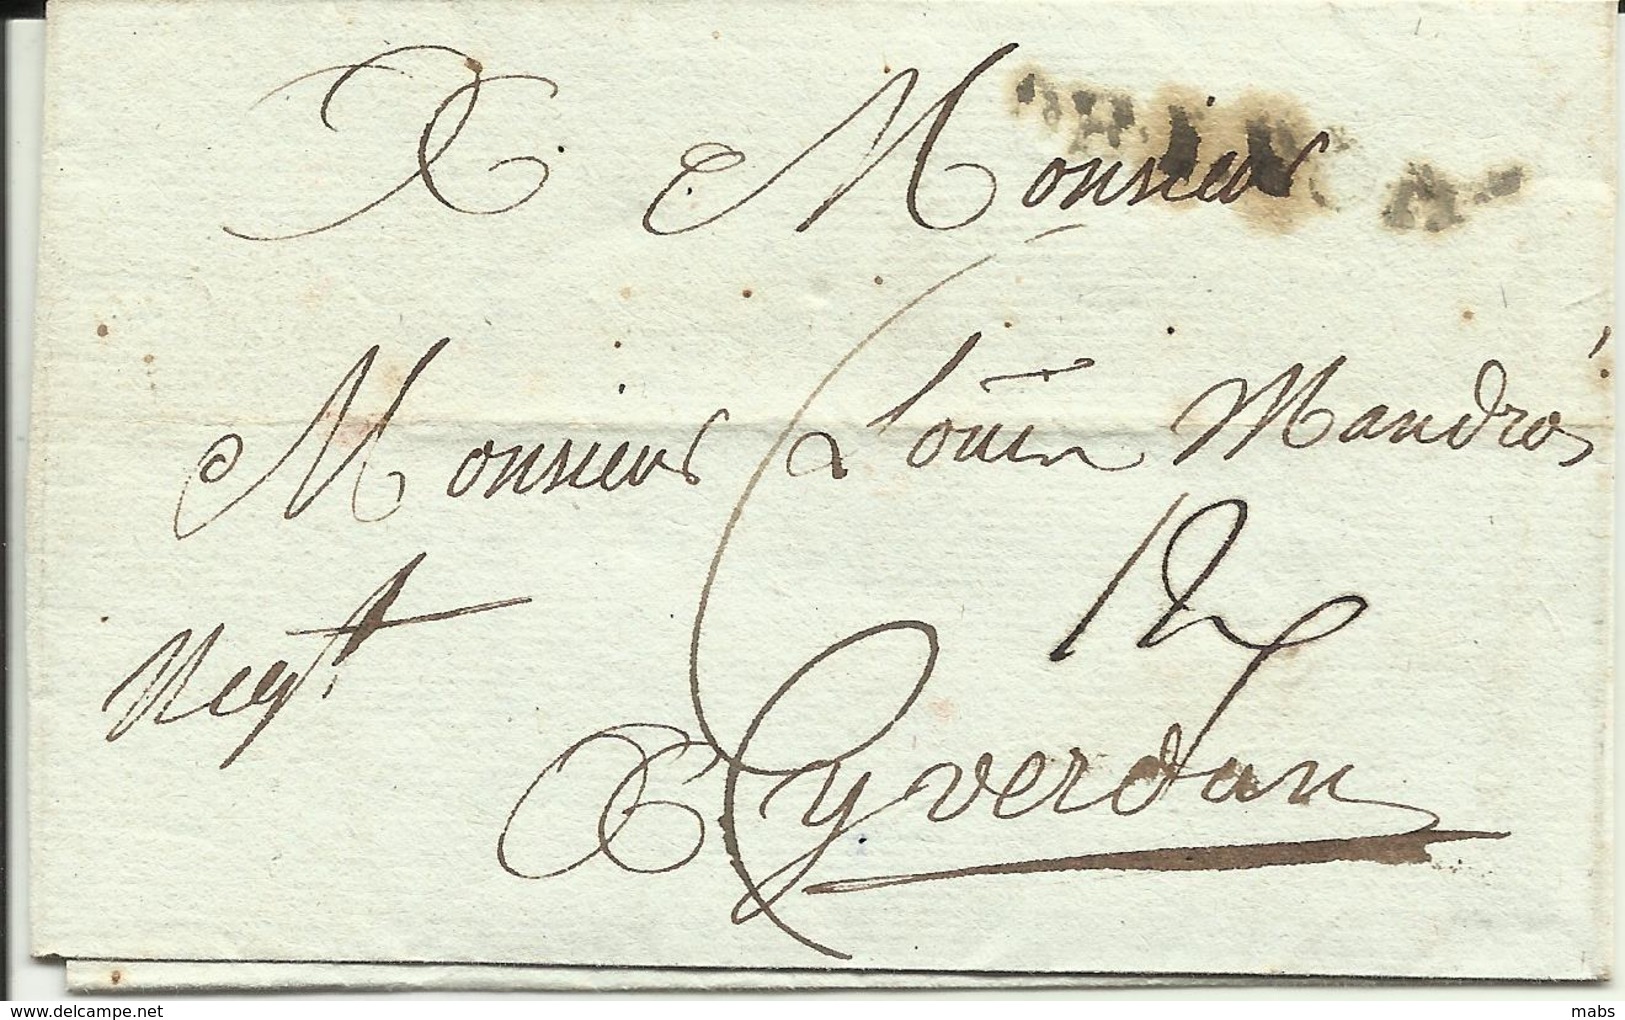 A Monsieur
Monsieur Louis Mandrot
Negt
12
a Yverdun
delcampe.net
mabs